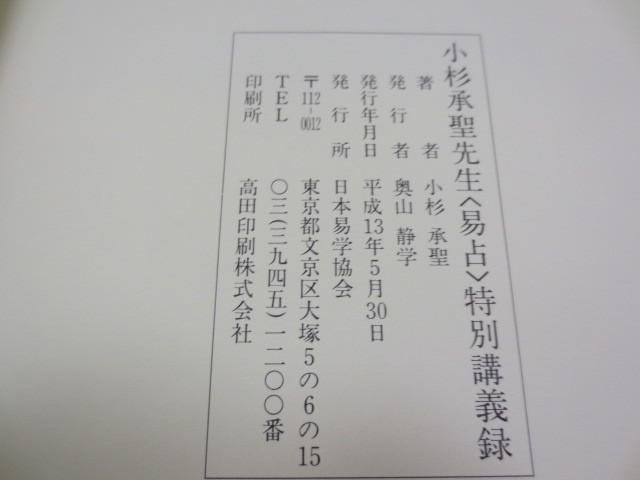 小杉承聖先生〈易占〉特別講義録
著者 小杉 承聖
発行者 奥山 静学
発行年月日 平成13年5月30日
発行所 日本易学協会
〒112-0012 東京都文京区大塚5の6の15
TEL 〇三(三九四五)一二〇〇番
印刷所 高田印刷株式会社